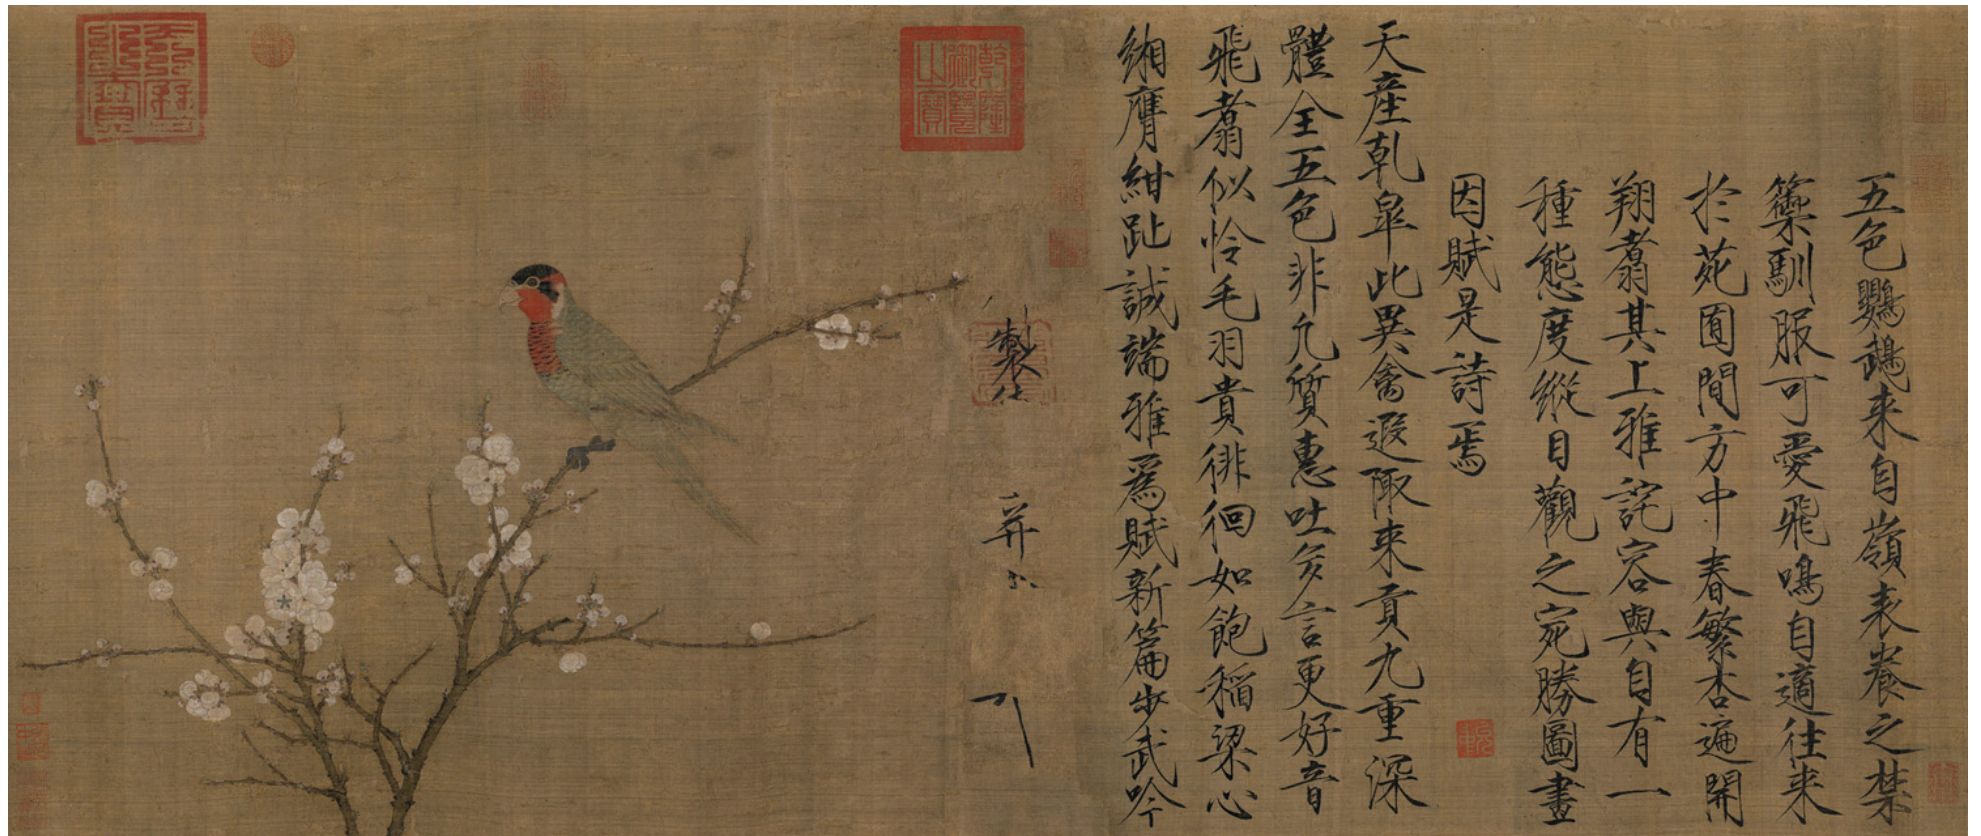 五色鸚鵡来自嶺表養之禁
籞馴服可愛飛鳴自適往来
於苑囿間方中春繁杏遍開
翔翥其上雅詫容與自有一
種態度縱目觀之宛勝圖畫
因賦是詩焉
天産乹皐此異禽遐陬来貢九重深
體全五色非凡質惠吐多言更好音
飛翥似怜毛羽貴徘徊如飽稲粱心
緗膺紺趾誠端雅為賦新篇步武吟
製
乾隆御覽之寶